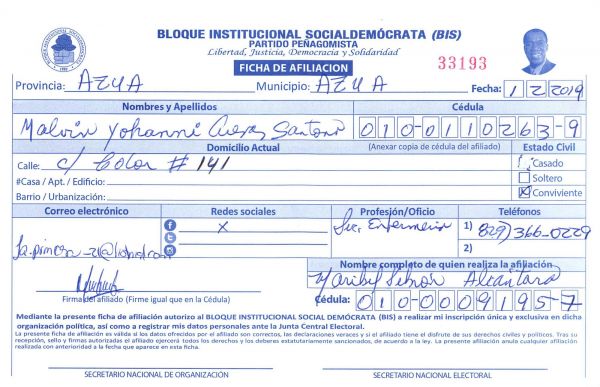 BLOQUE INSTITUCIONAL SOCIALDEMÓCRATA (BIS)
PARTIDO PEÑAGOMISTA
Libertad, Justicia, Democracia y Solidaridad
FICHA DE AFILIACION
33193
Provincia: AZUA Municipio: AZUA Fecha: 1 2 2019
Nombres y Apellidos Cédula
Malvin Yohanni Santoni 010-0110263-9
Domicilio Actual (Anexar copia de cédula del afiliado) Estado Civil
Calle: c/ Colon # 141 Casado
#Casa / Apt. / Edificio: Soltero
Barrio / Urbanización: X Conviviente
Correo electrónico Redes sociales Profesión/Oficio Teléfonos
X Enfermeria 1) (829) 366-0229
2)
Nombre completo de quien realiza la afiliación
Maribel Alcantara
Firma del afiliado (Firme igual que en la Cédula) Cédula: 010-0009195-7
Mediante la presente ficha de afiliación autorizo al BLOQUE INSTITUCIONAL SOCIAL DEMÓCRATA (BIS) a realizar mi inscripción única y exclusiva en dicha
organización política, así como a registrar mis datos personales ante la Junta Central Electoral.
La presente ficha de afiliación en válida si los datos ofrecidos por el afiliado son correctos, las declaraciones veraces y si el afiliado tiene el disfrute de sus derechos civiles y políticos. Tras su
recepción, sello y firmas autorizadas el afiliado ejercerá todos los derechos y los deberes estatutariamente sancionados, de acuerdo a la ley. La presente afiliación anula cualquier afiliación
realizada con anterioridad a la fecha que aparece en esta ficha.
SECRETARIO NACIONAL DE ORGANIZACIÓN SECRETARIO NACIONAL ELECTORAL